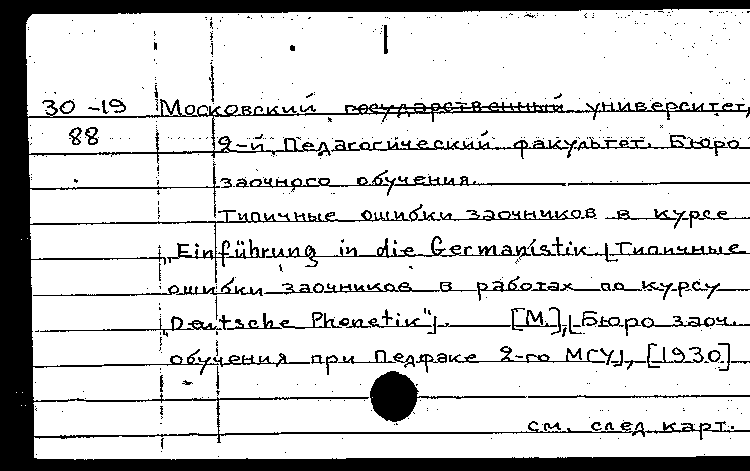 30-19 Московский государственный университет,
88 2-й. Педагогический факультет. Бюро
заочного обучения.
Типичные ошибки заочников в курсе
„Einführung in die Germanistik. [Типичные
ошибки заочников в работах по курсу
„Deutsche Phonetik"]. [М.], [Бюро заоч.
обучения при Педфаке 2-го МГУ], [1930]
см. след. карт.